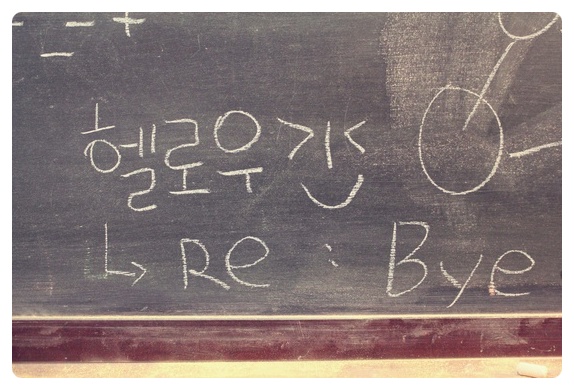 헬로우
↳ Re : Bye